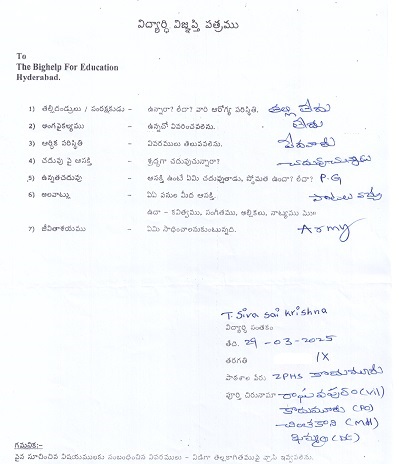 విద్యార్థి విజ్ఞప్తి పత్రము
To
The Bighelp For Education
Hyderabad.
1) తల్లిదండ్రులు / సంరక్షకుడు - ఉన్నారా? లేదా? వారి ఆరోగ్య పరిస్థితి. తల్లి లేదు
2) అంగవైకల్యము - ఉన్నచో వివరించవలెను. లేదు
3) ఆర్థిక పరిస్థితి - వివరములు తెలుపవలెను. పేదవారు
4) చదువు పై ఆసక్తి - శ్రద్ధగా చదువుచున్నారా? చదువుచున్నాడు
5) ఉన్నతచదువు - ఆసక్తి ఉంటే ఏమి చదువుతాడు, స్తోమత ఉందా? లేదా? P.G
6) అలవాట్లు - ఏఏ పనుల మీద ఆసక్తి. పాటలు
ఉదా - కవిత్వము, సంగీతము, అల్లికలు, నాట్యము మొ॥
7) జీవితాశయము - ఏమి సాధించాలనుకుంటున్నది. Army
T. Siva sai krishna
విద్యార్థి సంతకం
తేది. 29-03-2025
తరగతి IX
పాఠశాల పేరు ZPHS కొదుమూరు
పూర్తి చిరునామా రాఘవపురం (Vil)
కొదుమూరు (PO)
చింతకాని (Mdl)
ఖమ్మం (Dt)
గమనిక:-
పైన సూచించిన విషయములకు సంబంధించిన వివరములు - విడిగా తెల్లకాగితముపై వ్రాసి ఇవ్వవలెను.